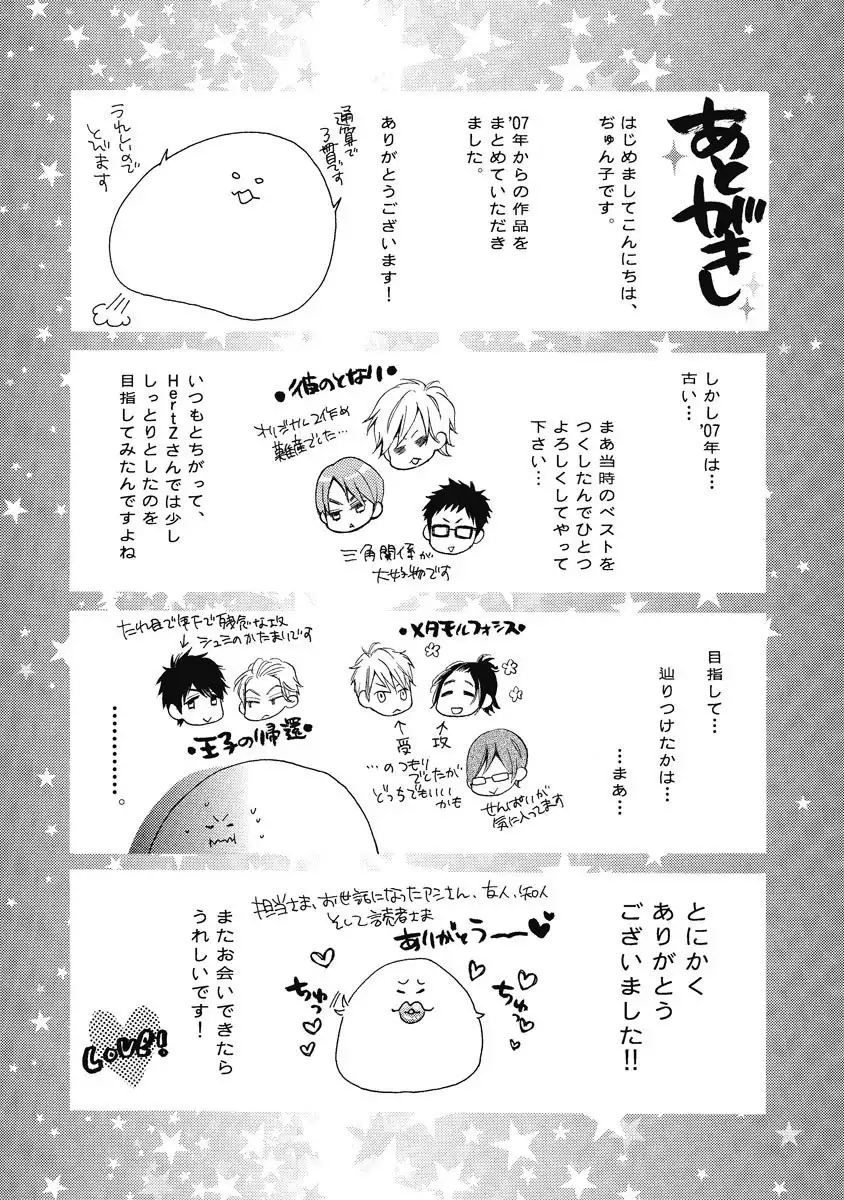 あとがき
はじめましてこんにちは、
ぢゅん子です。
'07年からの作品を
まとめていただき
ました。
ありがとうございます!
通算で
3冊目です
うれしいので
とびます
しかし'07年は…
古い…
まあ当時のベストを
つくしたんでひとつ
よろしくしてやって
下さい…
・彼のとなり・
オリジナル2作め
難産でした…
三角関係が
大好物です
いつもとちがって、
HertZさんでは少し
しっとりとしたのを
目指してみたんですよね
目指して…
辿りつけたかは…
…まあ…
・メタモルフォシス・
受
攻
…のつもり
でしたが
どっちでもいい
かも
せんぱいが
気に入ってます
たれ目で年下で残念な攻
シュミのかたまりです
・王子の帰還・
…………。
とにかく
ありがとう
ございました!!
担当さま、お世話になったアシさん、友人、知人
そして読者さま
ありがとうーー
ちゅっ
ちゅっ
またお会いできたら
うれしいです!
LOVE!